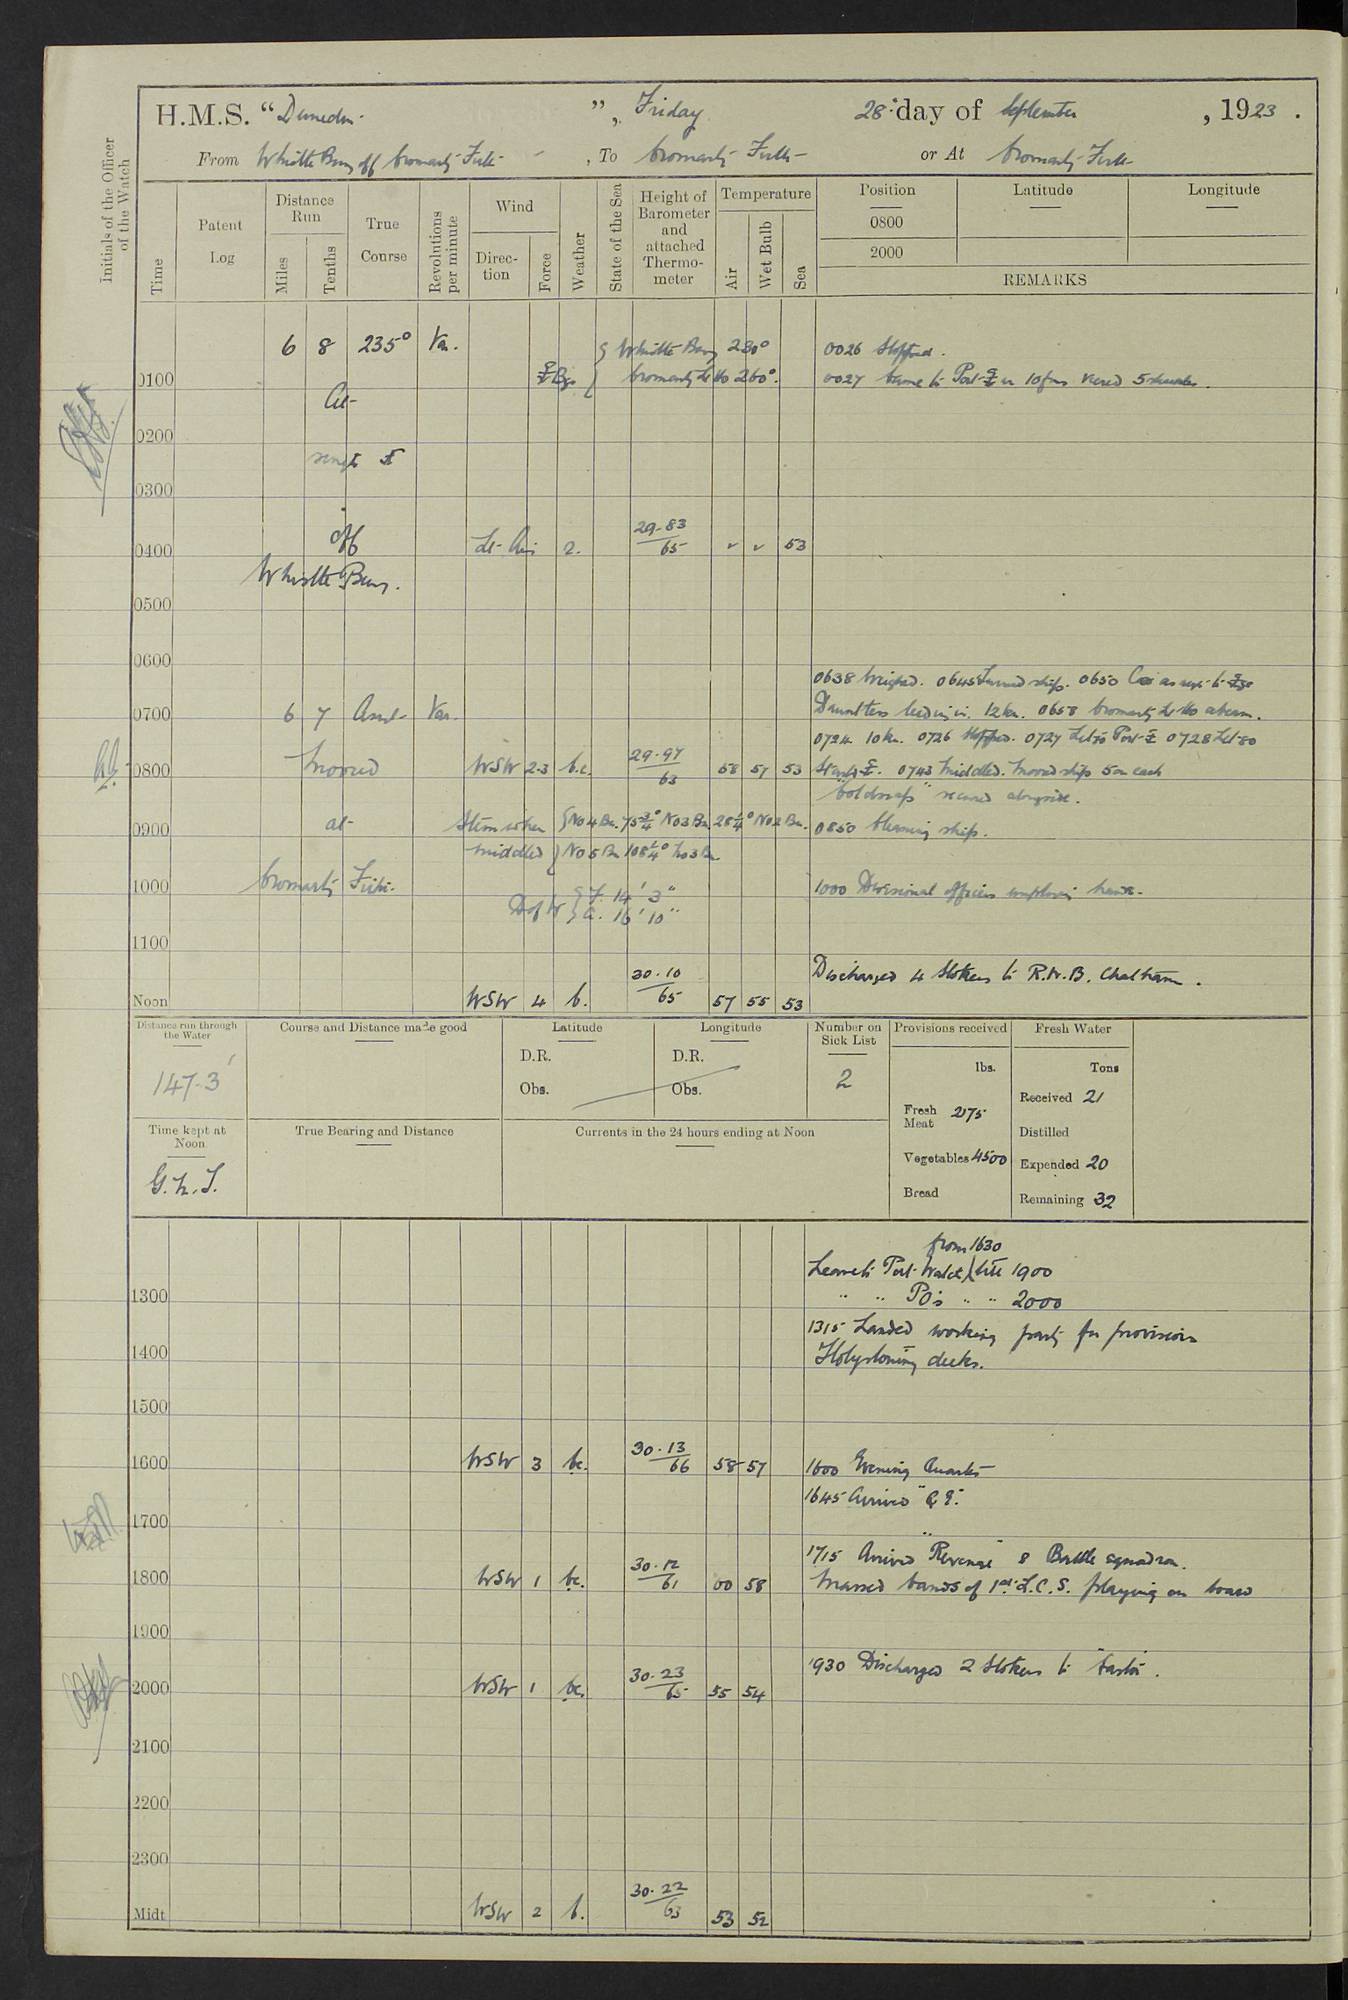 H.M.S. "Dunedin", Friday 28th day of September, 1923.
From Whistle Buoy off Cromarty Firth, To Cromarty Firth or At Cromarty Firth
Initials of the Officer of the Watch
Time
Patent Log
Distance Run
Miles
Tenths
True Course
Revolutions per minute
Wind
Direction
Force
Weather
State of the Sea
Height of Barometer and attached Thermometer
Temperature
Air
Wet Bulb
Sea
Position
Latitude
Longitude
0800
2000
REMARKS
6 8 235° Var. { Whistle Buoy 230° 0026 Stopped.
0100 Bgs { Cromarty Lt Ho 260°. 0027 Came to Port in 10 fms veered 5 shackles.
At
0200
single
0300
off
0400 Lt Airs 2. 29.83/65 53
Whistle Buoy.
0500
0600
0638 Weighed. 0645 Turned ship. 0650 Co as req to
0700 6 7 Var. Dauntless leading in. 12 kn. 0658 Cromarty Lt Ho abeam.
0724 10 kn. 0726 Stopped. 0727 Let go Port 0728 Let go
0800 Moored WSW 2-3 b.c. 29.97/63 58 57 53 Starbd. 0743 Middled. Moored ship 5 on each
"Coldsnap" secured alongside.
0900 at Stem when { No 4 Bn. 75¾° No 3 Bn. 28¼° No 2 Bn. 0850 Cleaning ship.
middled } No 5 Bn 108¼° No 3 Bn
1000 Cromarty Firth. 1000 Divisional officers employing hands.
D of W { F. 14' 3"
A. 16' 10"
1100
Discharged 4 Stokers to R.N.B. Chatham.
Noon WSW 4 b. 30.10/65 57 55 53
Distance run through the Water
147.3'
Course and Distance made good
Latitude
D.R.
Obs.
Longitude
D.R.
Obs.
Number on Sick List
2
Provisions received
lbs.
Fresh Meat 275
Vegetables 4500
Bread
Fresh Water
Tons
Received 21
Distilled
Expended 20
Remaining 32
Time kept at Noon
G.M.T.
True Bearing and Distance
Currents in the 24 hours ending at Noon
from 1630
Leave to Port Watch till 1900
1300 " " PO's " " 2000
1315 Landed working party for provisions
1400 Holystoning decks.
1500
1600 WSW 3 bc. 30.13/66 58 57 1600 Evening Quarters
1645 Arrived "Q E".
1700
1715 Arrived "Revenge" & Battle squadron.
1800 WSW 1 bc. 30.12/61 60 58 Massed bands of 1st L.C.S. playing on board
1900
1930 Discharged 2 Stokers to "Castor".
2000 WSW 1 bc. 30.23/65 55 54
2100
2200
2300
Midt WSW 2 b. 30.22/63 53 52